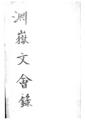 淵嶽文會錄